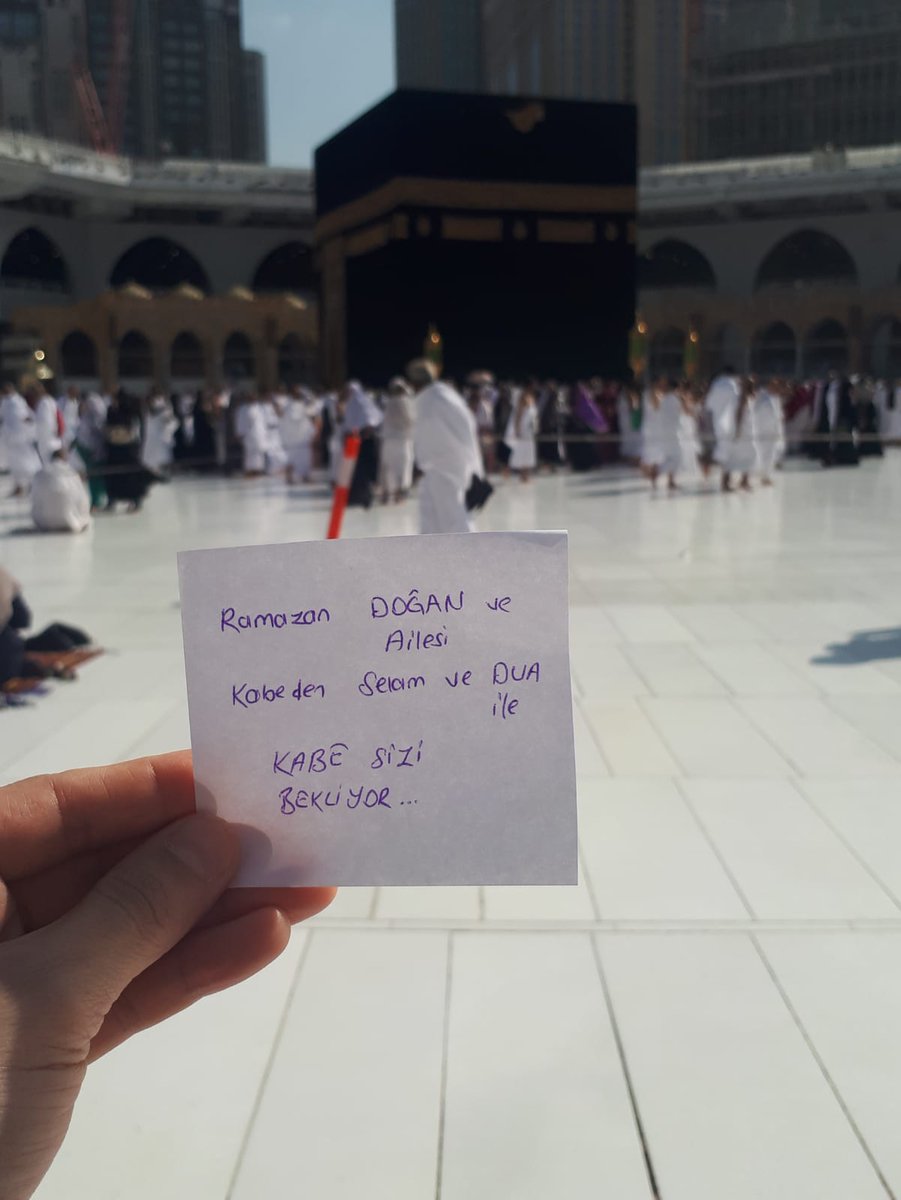 Ramazan DOĞAN ve
Ailesi
Kabeden Selam ve DUA
ile
KABE SİZİ
BEKLİYOR...